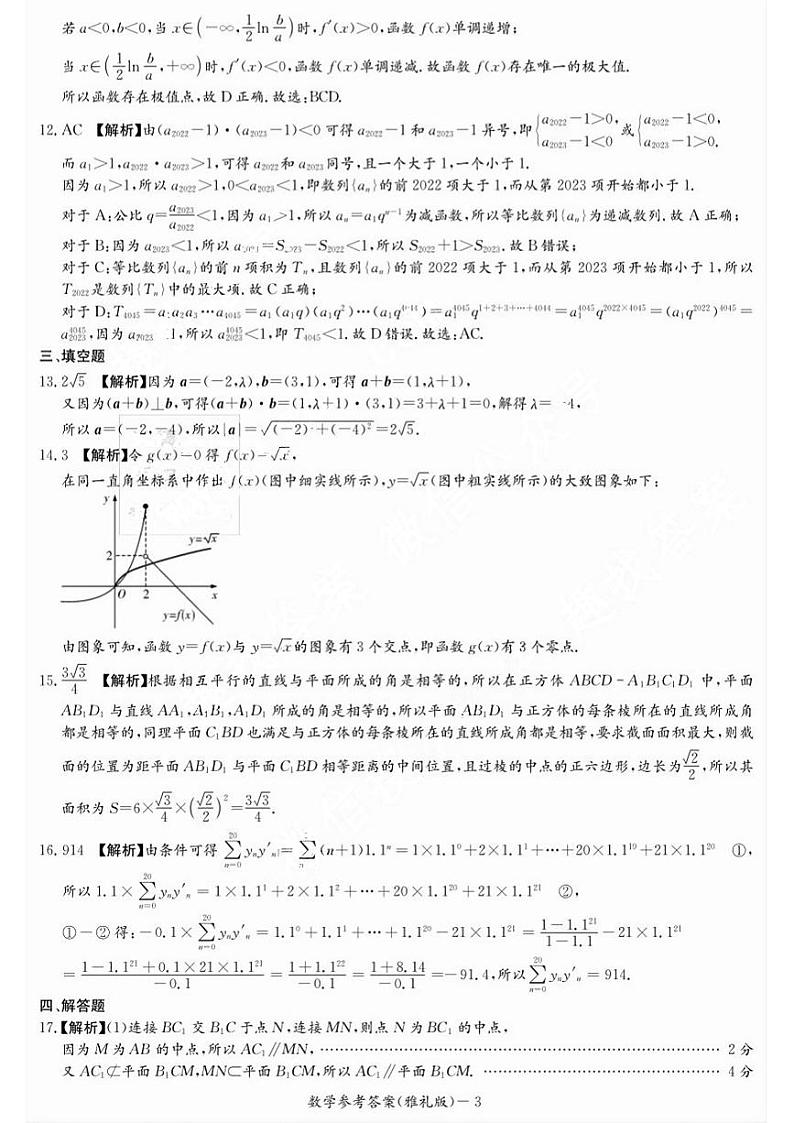 若 a<0,b<0,当 x∈(-∞,1/2 ln b/a)时,f′(x)>0,函数 f(x)单调递增;
当 x∈(1/2 ln b/a,+∞)时,f′(x)<0,函数 f(x)单调递减.故函数 f(x)存在唯一的极大值.
所以函数存在极值点,故 D 正确.故选:BCD.
12.AC 【解析】由(a₂₀₂₂-1)·(a₂₀₂₃-1)<0 可得 a₂₀₂₂-1 和 a₂₀₂₃-1 异号,即{a₂₀₂₂-1>0, a₂₀₂₃-1<0 或{a₂₀₂₂-1<0, a₂₀₂₃-1>0.
而 a₁>1,a₂₀₂₂·a₂₀₂₃>1,可得 a₂₀₂₂和 a₂₀₂₃同号,且一个大于 1,一个小于 1.
因为 a₁>1,所以 a₂₀₂₂>1,0<a₂₀₂₃<1,即数列{aₙ}的前 2022 项大于 1,而从第 2023 项开始都小于 1.
对于 A:公比 q=a₂₀₂₃/a₂₀₂₂<1,因为 a₁>1,所以 aₙ=a₁qⁿ⁻¹为减函数,所以等比数列{aₙ}为递减数列.故 A 正确;
对于 B:因为 a₂₀₂₃<1,所以 =S₂₀₂₃-S₂₀₂₂<1,所以 S₂₀₂₂+1>S₂₀₂₃.故 B 错误;
对于 C:等比数列{aₙ}的前 n 项积为 Tₙ,且数列{aₙ}的前 2022 项大于 1,而从第 2023 项开始都小于 1,所以
T₂₀₂₂是数列{Tₙ}中的最大项.故 C 正确;
对于 D:T₄₀₄₅=a₁a₂a₃…a₄₀₄₅=a₁(a₁q)(a₁q²)…(a₁q⁴⁰⁴⁴)=a₁⁴⁰⁴⁵q¹⁺²⁺³⁺…⁺⁴⁰⁴⁴=a₁⁴⁰⁴⁵q²⁰²²ˣ⁴⁰⁴⁵=(a₁q²⁰²²)⁴⁰⁴⁵=
a₂₀₂₃⁴⁰⁴⁵,因为 a₂₀₂₃ 1,所以 a₂₀₂₃⁴⁰⁴⁵<1,即 T₄₀₄₅<1.故 D 错误.故选:AC.
三、填空题
13.2√5 【解析】因为 a=(-2,λ),b=(3,1),可得 a+b=(1,λ+1),
又因为(a+b)⊥b,可得(a+b)·b=(1,λ+1)·(3,1)=3+λ+1=0,解得 λ=-4,
所以 a=(-2,-4),所以|a|=√((-2)²+(-4)²)=2√5.
14.3 【解析】令 g(x)=0 得 f(x)=√x,
在同一直角坐标系中作出 f(x)(图中细实线所示),y=√x(图中粗实线所示)的大致图象如下:
y
y=√x
2
O 2 x
y=f(x)
由图象可知,函数 y=f(x)与 y=√x的图象有 3 个交点,即函数 g(x)有 3 个零点.
15.3√3/4 【解析】根据相互平行的直线与平面所成的角是相等的,所以在正方体 ABCD-A₁B₁C₁D₁ 中,平面
AB₁D₁ 与直线 AA₁,A₁B₁,A₁D₁ 所成的角是相等的,所以平面 AB₁D₁ 与正方体的每条棱所在的直线所成角
都是相等的,同理平面 C₁BD 也满足与正方体的每条棱所在的直线所成角都是相等,要求截面面积最大,则截
面的位置为距平面 AB₁D₁ 与平面 C₁BD 相等距离的中间位置,且过棱的中点的正六边形,边长为√2/2,所以其
面积为 S=6×√3/4×(√2/2)²=3√3/4.
16.914 【解析】由条件可得 ∑(n=0→20) yₙy′ₙ=∑(n+1)1.1ⁿ=1×1.1⁰+2×1.1¹+…+20×1.1¹⁹+21×1.1²⁰ ①,
所以 1.1×∑(n=0→20) yₙy′ₙ=1×1.1¹+2×1.1²+…+20×1.1²⁰+21×1.1²¹ ②,
①-②得:-0.1×∑(n=0→20) yₙy′ₙ=1.1⁰+1.1¹+…+1.1²⁰-21×1.1²¹=(1-1.1²¹)/(1-1.1)-21×1.1²¹
=(1-1.1²¹+0.1×21×1.1²¹)/(-0.1)=(1+1.1²²)/(-0.1)=(1+8.14)/(-0.1)=-91.4,所以∑(n=0→20) yₙy′ₙ=914.
四、解答题
17.【解析】(1)连接 BC₁ 交 B₁C 于点 N,连接 MN,则点 N 为 BC₁ 的中点,
因为 M 为 AB 的中点,所以 AC₁∥MN, …… 2 分
又 AC₁⊄平面 B₁CM,MN⊂平面 B₁CM,所以 AC₁∥平面 B₁CM. …… 4 分
数学参考答案(雅礼版)-3